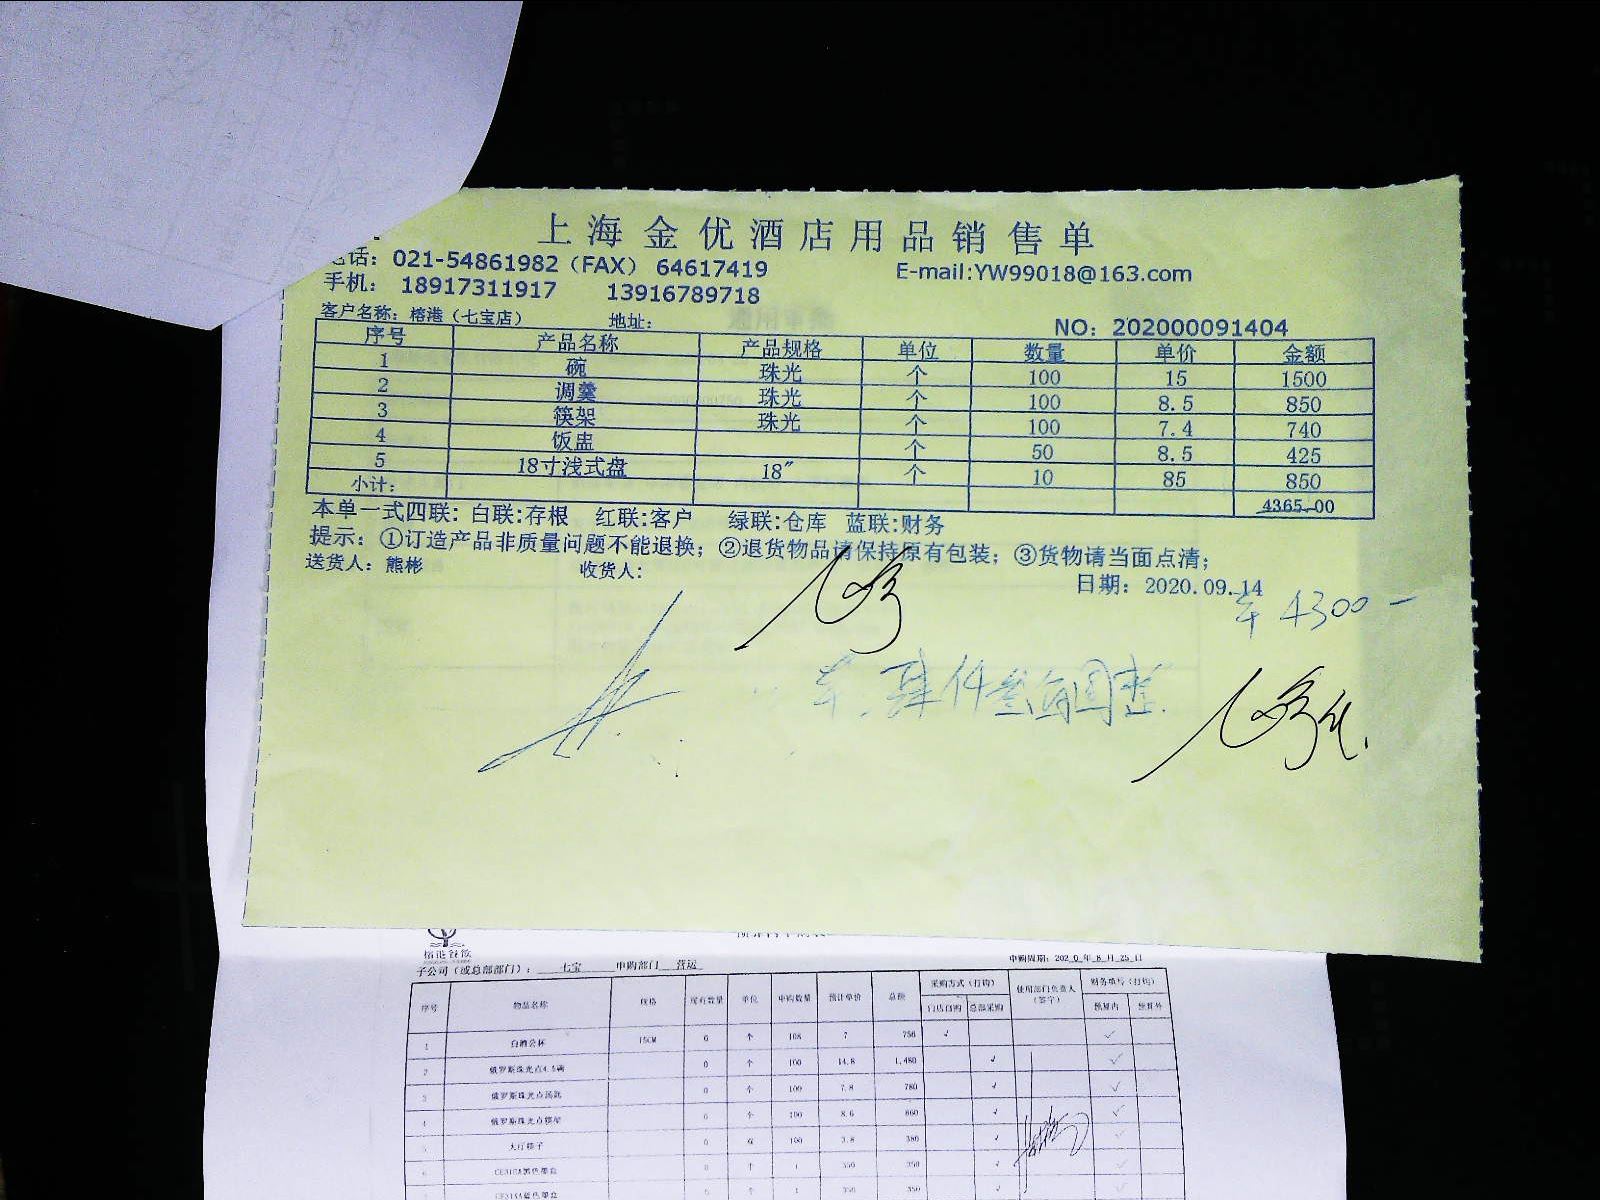 上海金优酒店用品销售单
话：021-54861982（FAX） 64617419 E-mail:YW99018@163.com
手机： 18917311917 13916789718
客户名称：榕港（七宝店） 地址： NO：202000091404
序号 产品名称 产品规格 单位 数量 单价 金额
1 碗 珠光 个 100 15 1500
2 调羹 珠光 个 100 8.5 850
3 筷架 珠光 个 100 7.4 740
4 饭盅 个 50 8.5 425
5 18寸浅式盘 18″ 个 10 85 850
小计： 4365.00
本单一式四联: 白联:存根 红联:客户 绿联:仓库 蓝联:财务
提示：①订造产品非质量问题不能退换；②退货物品请保持原有包装；③货物请当面点清；
送货人：熊彬 收货人: 日期：2020.09.14
4300－
肆仟叁百圆整
榕港餐饮
子公司（或总部部门）： 七宝 申购部门 营运 申购周期：2020年8月25日
序号 物品名称 规格 现有数量 单位 申购数量 预计单价 总额 采购方式（打钩） 使用部门负责人（签字） 财务填写（打钩）
门店自购 总部采购 预算内 预算外
1 白酒公杯 15CM 0 个 108 7 756 √ √
2 俄罗斯珠光点4.5碗 0 个 100 14.8 1,480 √ √
3 俄罗斯珠光点汤匙 0 个 100 7.8 780 √ √
4 俄罗斯珠光点筷架 0 个 100 8.6 860 √ √
5 大红筷子 0 双 100 3.8 380 √ √
6 0 个 1 350 350 √ √
7 个 1 350 350 √